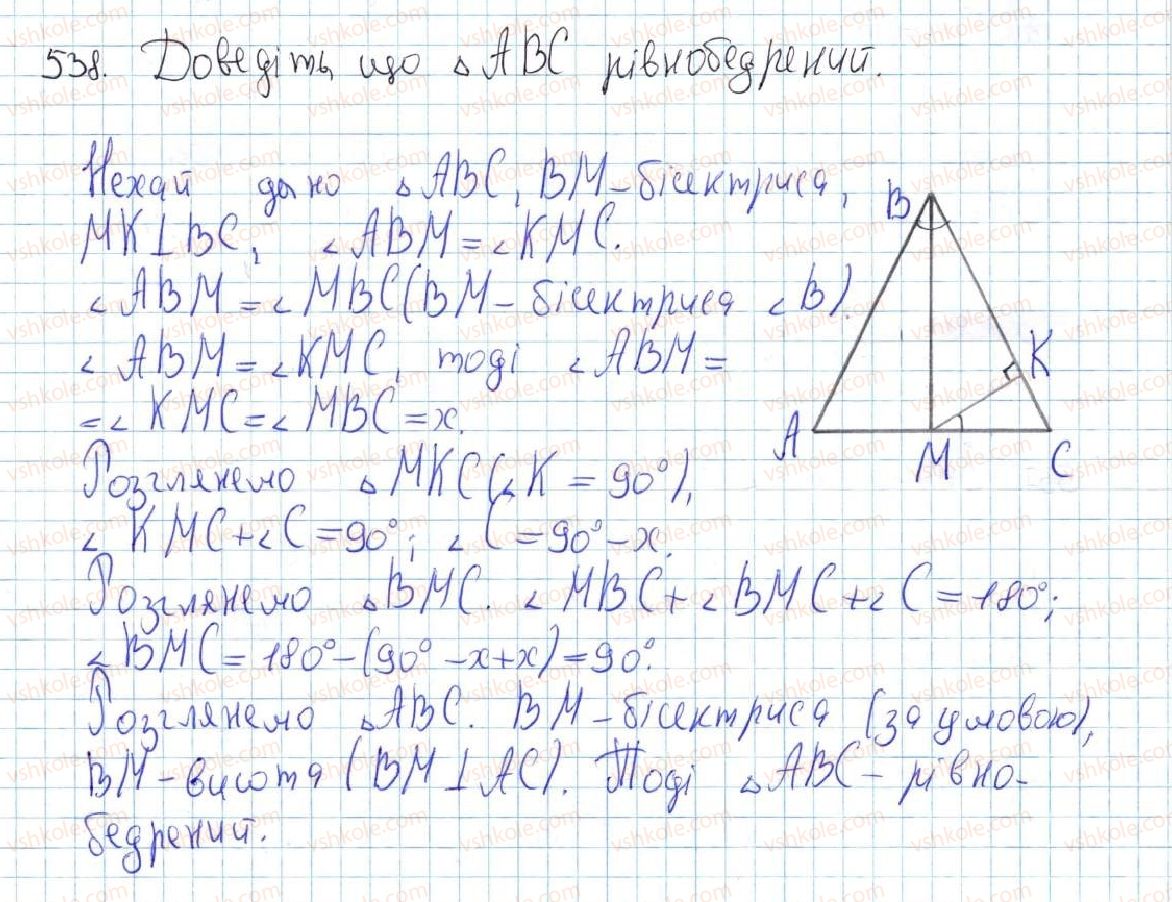 538. Доведіть, що △ABC рівнобедрений.
Нехай дано △ABC, BM – бісектриса,
MK⊥BC, ∠ABM = ∠KMC.
∠ABM = ∠MBC (BM – бісектриса ∠B).
∠ABM = ∠KMC, тоді ∠ABM =
= ∠KMC = ∠MBC = x.
Розглянемо △MKC (∠K = 90°),
∠KMC + ∠C = 90°; ∠C = 90° – x.
Розглянемо △BMC. ∠MBC + ∠BMC + ∠C = 180°;
∠BMC = 180° – (90° – x + x) = 90°.
Розглянемо △ABC. BM – бісектриса (за умовою),
BM – висота (BM⊥AC). Тоді △ABC – рівно-
бедрений.
B
K
A
M
C
vshkole.com